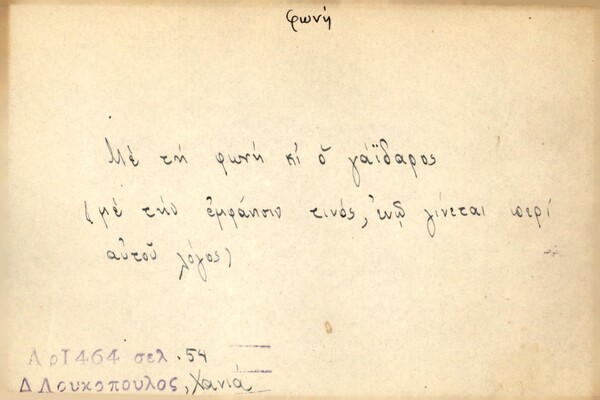 φωνή
Μὲ τὴ φωνή κι ὁ γάϊδαρος
(μὲ τὴν ἐμφάνισιν τινός, ἐνῷ γίνεται περί
αὐτοῦ λόγος)
Αρ 1464 σελ. 54
Δ Λουκοπουλος, Χανιά